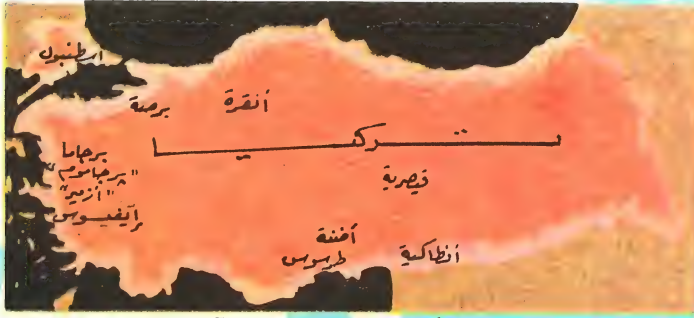 اسطنبول
أنقرة
برصة
تركيا
برجاما
"برجاموم"
"أزمير"
إيفيسوس
قيصرية
أضنة
طرسوس
أنطاكية